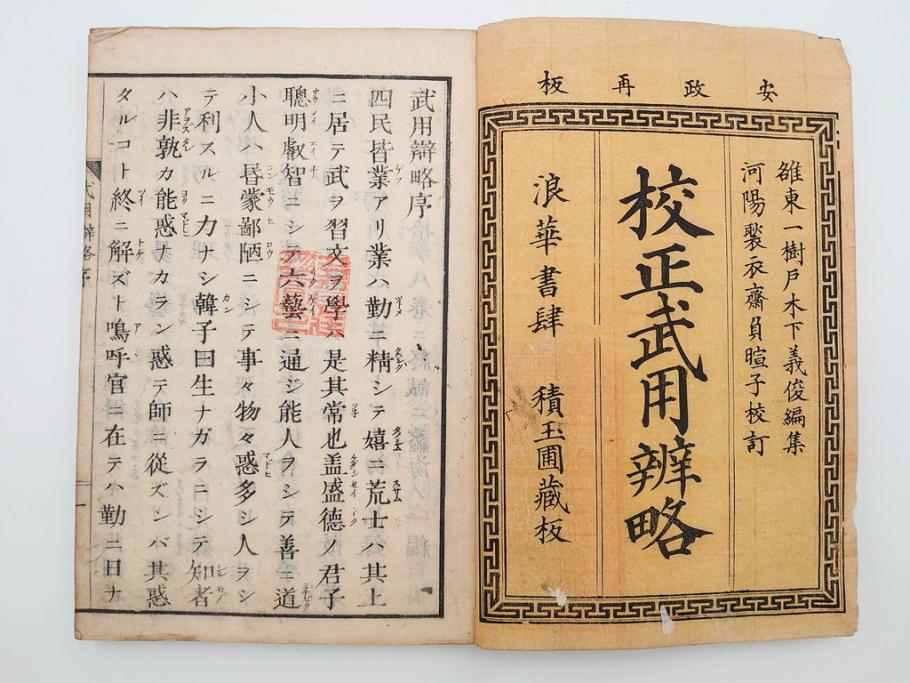 安政再板
雒東一樹戸木下義俊編集
河陽褧衣齋負暄子校訂
校正武用辨略
浪華書肆 積玉圃藏板
武用辯略序
四民皆業アリ業ハ勤ニ精シテ嬉ニ荒士ハ其上
ニ居テ武ヲ習文ヲ學ハ是其常也盖盛德ノ君子
聰明叡智ニシテ六藝ニ通ジ能人ヲシテ善ニ道
小人ハ昏蒙鄙陋ニシテ事々物々惑多シ人ヲシ
テ利スルニ力ナシ韓子曰生ナガラニシテ知者
ハ非孰カ能惑ナカラン惑テ師ニ從ズンバ其惑
タルコト終ニ解ズト嗚呼官ニ在テハ勤ニ日ナ
武用辨略序
一